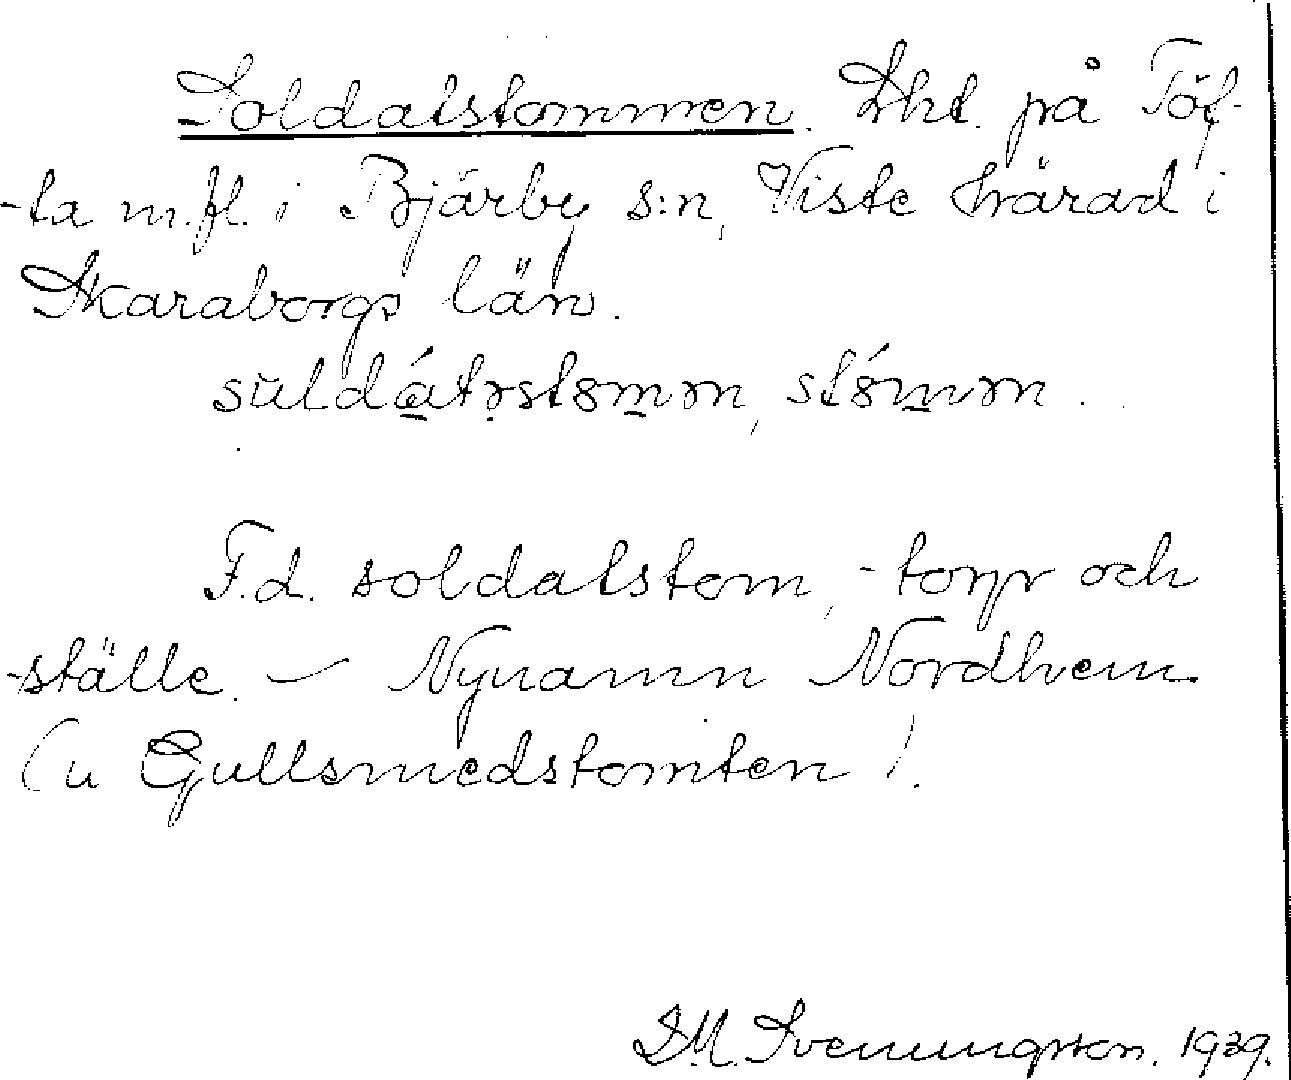 Soldatstommen. Lht. på Töf-
-ta m.fl. i Bjärby s:n, Viste härad i
Skaraborgs län.
F.d. soldatstom, -torp och
-ställe. – Nynamn Nordhem
(u Gullsmedstomten).
D.M. Svenningsson. 1939.